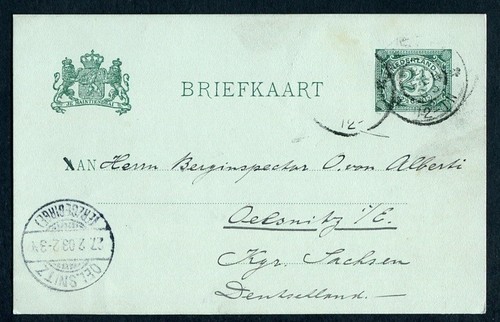 JE MAINTIENDRAI
BRIEFKAART
NEDERLAND
2½
12-
12-
AAN Herrn Berginspector O. von Alberti
Oelsnitz i/E.
Kgr. Sachsen
Deutschland.
(ERZGEBIRGE)
27.2.03.2-3
OELSNITZ